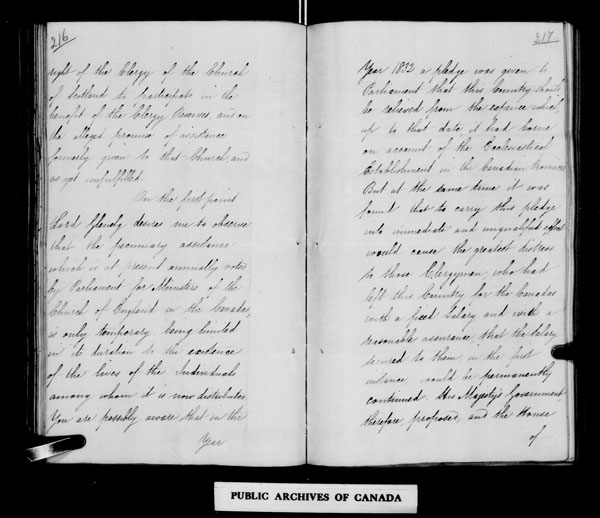 216
right of the Clergy of the Church
of Scotland to participate in the
benefit of the Clergy Reserves, and on
the alleged promise of assistance
formerly given to that Church, and
as yet unfulfilled.
On the first point
Lord Glenelg desires me to observe
that the pecuniary assistance
which is at present annually voted
by Parliament for Ministers of the
Church of England in the Canadas,
is only temporary being limited
in its duration to the existence
of the lives of the Individuals
among whom it is now distributed.
You are possibly aware that in the
Year
217
Year 1832 a pledge was given to
Parliament that this Country should
be relieved from the expence which,
up to that date, it had borne
on account of the Ecclesiastical
Establishment in the Canadian Provinces.
But at the same time it was
found that to carry this pledge
into immediate and unqualified effect
would cause the greatest distress
to those Clergymen, who had
left this Country for the Canadas
with a fixed Salary and with a
reasonable assurance that the Salary
secured to them in the first
instance, would be permanently
continued. His Majesty's Government
therefore proposed, and the House
of
PUBLIC ARCHIVES OF CANADA